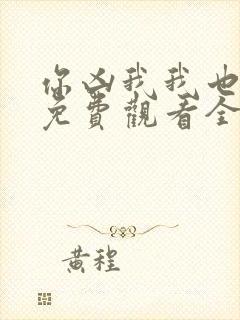 你凶我我也
免費觀看全
黃程